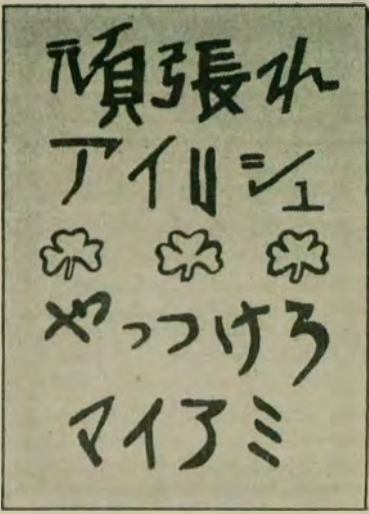 頑張れ
アイリシュ
やっつけろ
マイアミ